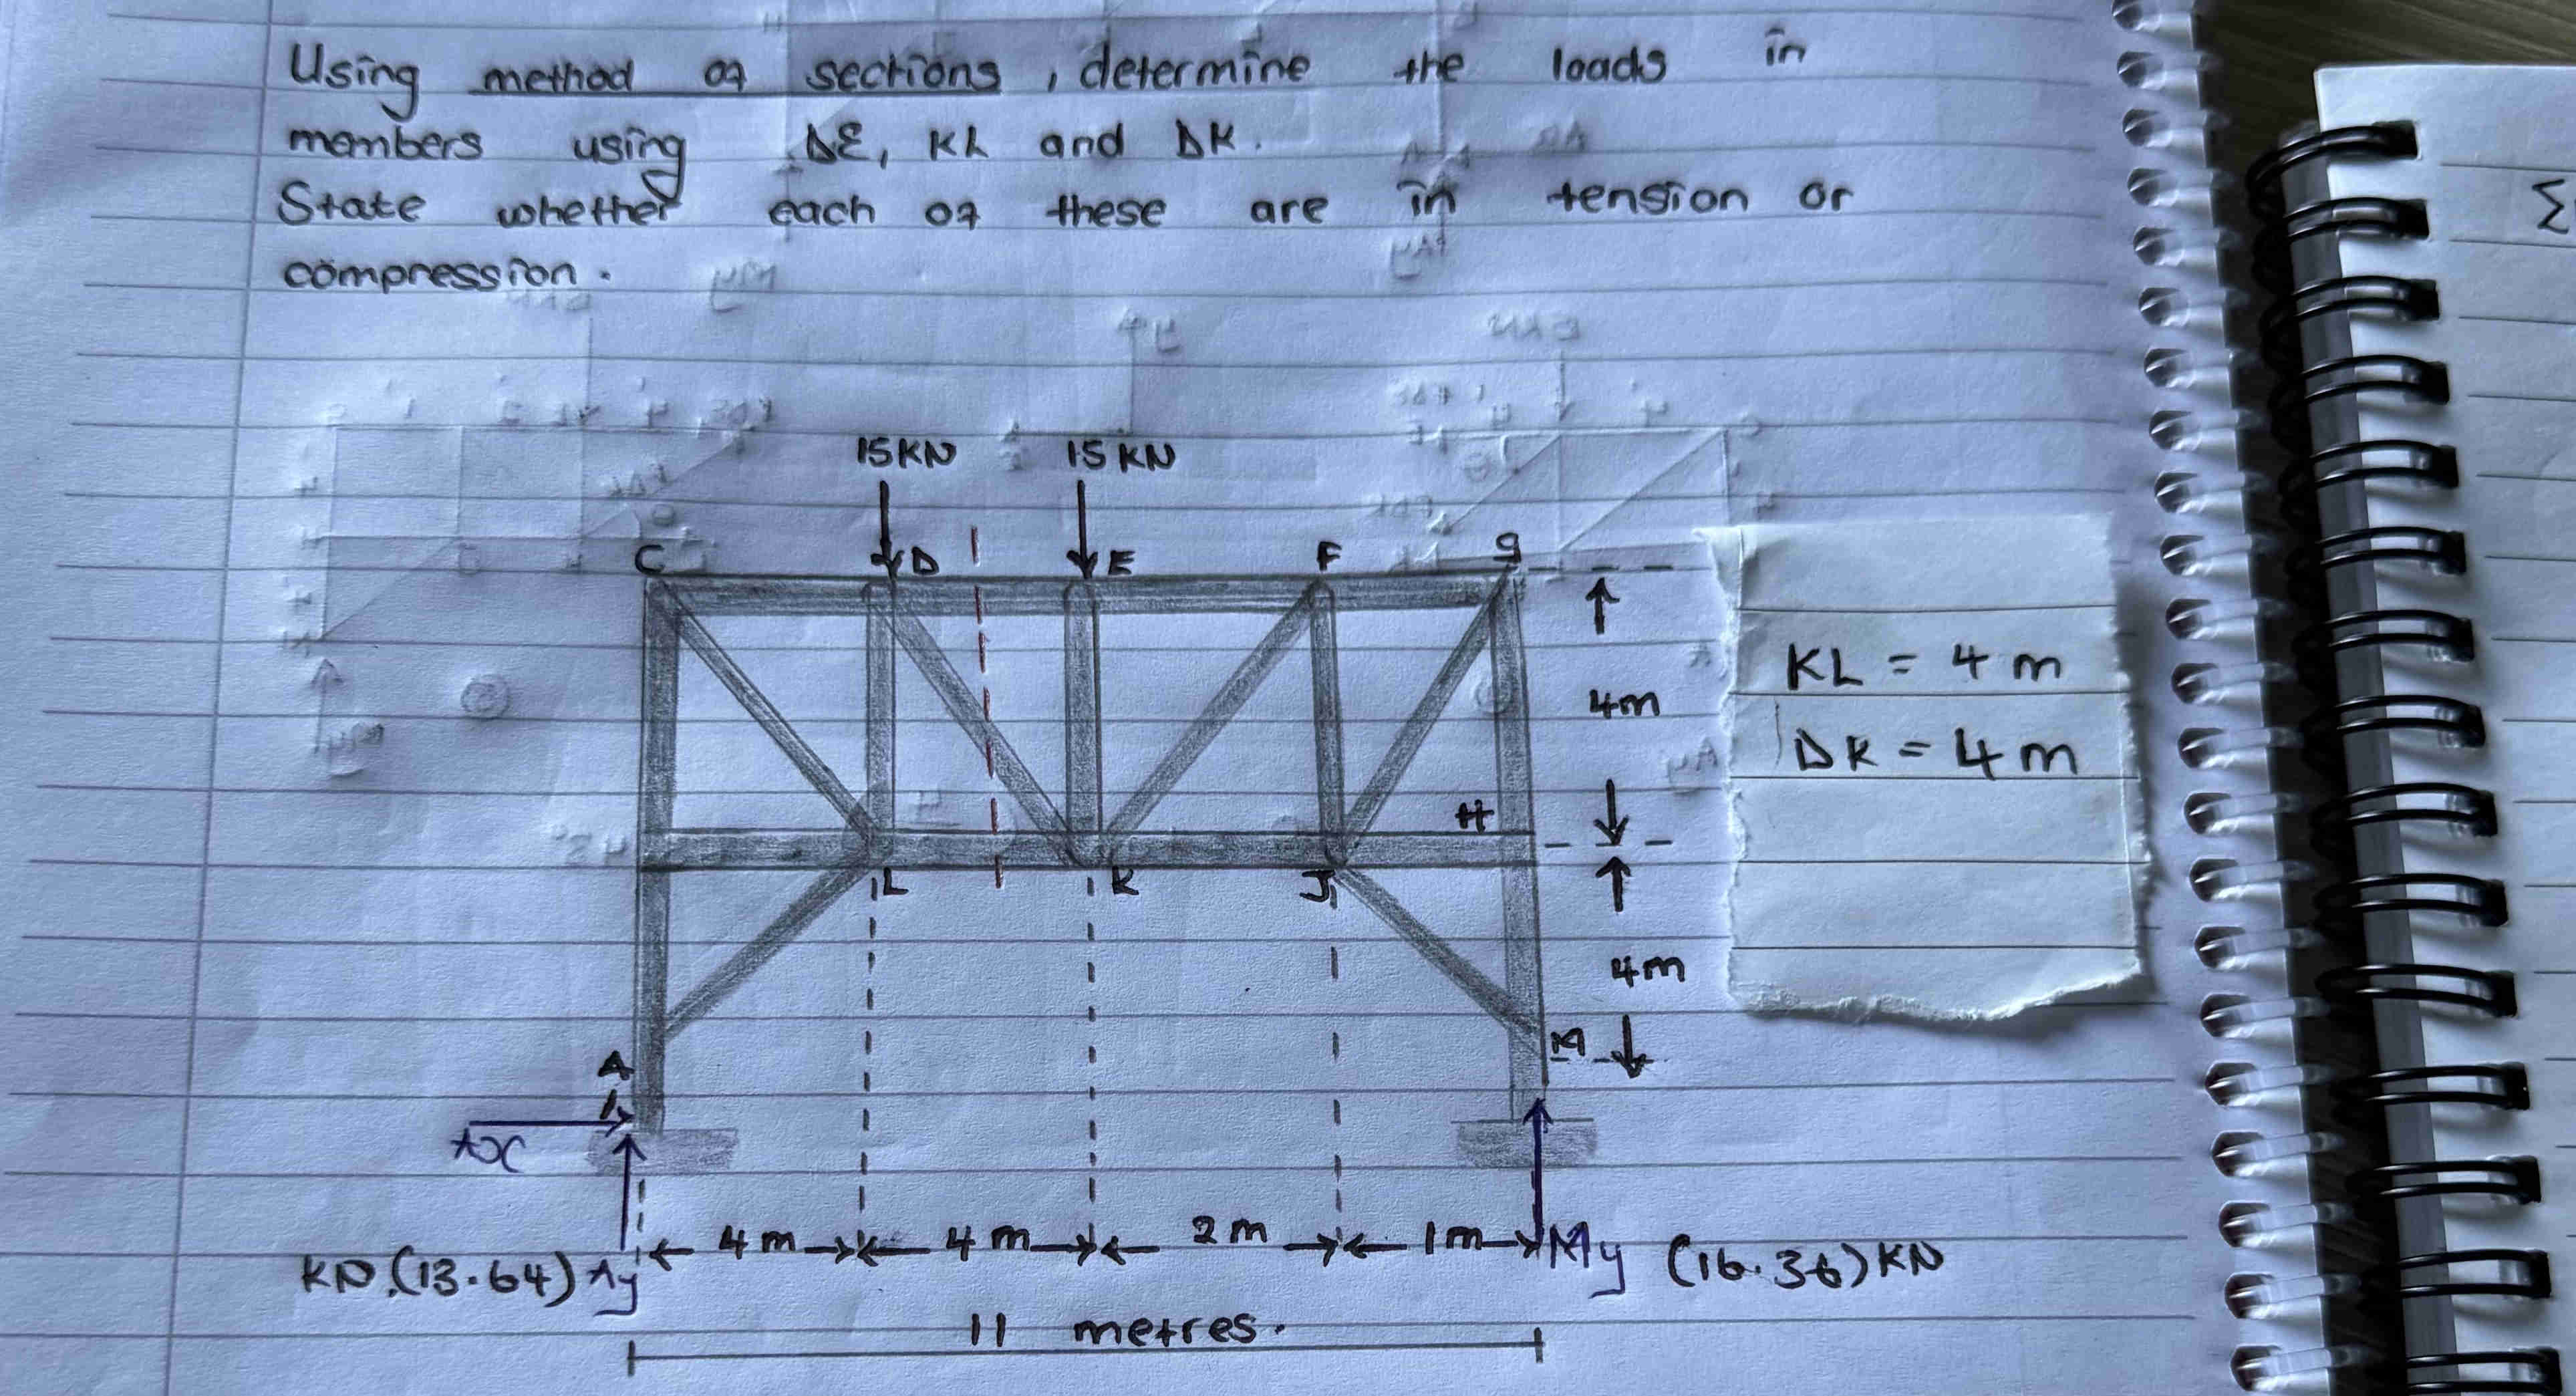 Using method of sections, determine the loads in
members using DE, KL and DK.
State whether each of these are in tension or
compression.
15KN 15KN
C D E F G
4m
KL = 4m
DK = 4m
H
L K J
4m
A M
Ax
4m 4m 2m 1m
KN.(13.64) Ay My (16.36)KN
11 metres.
Σ